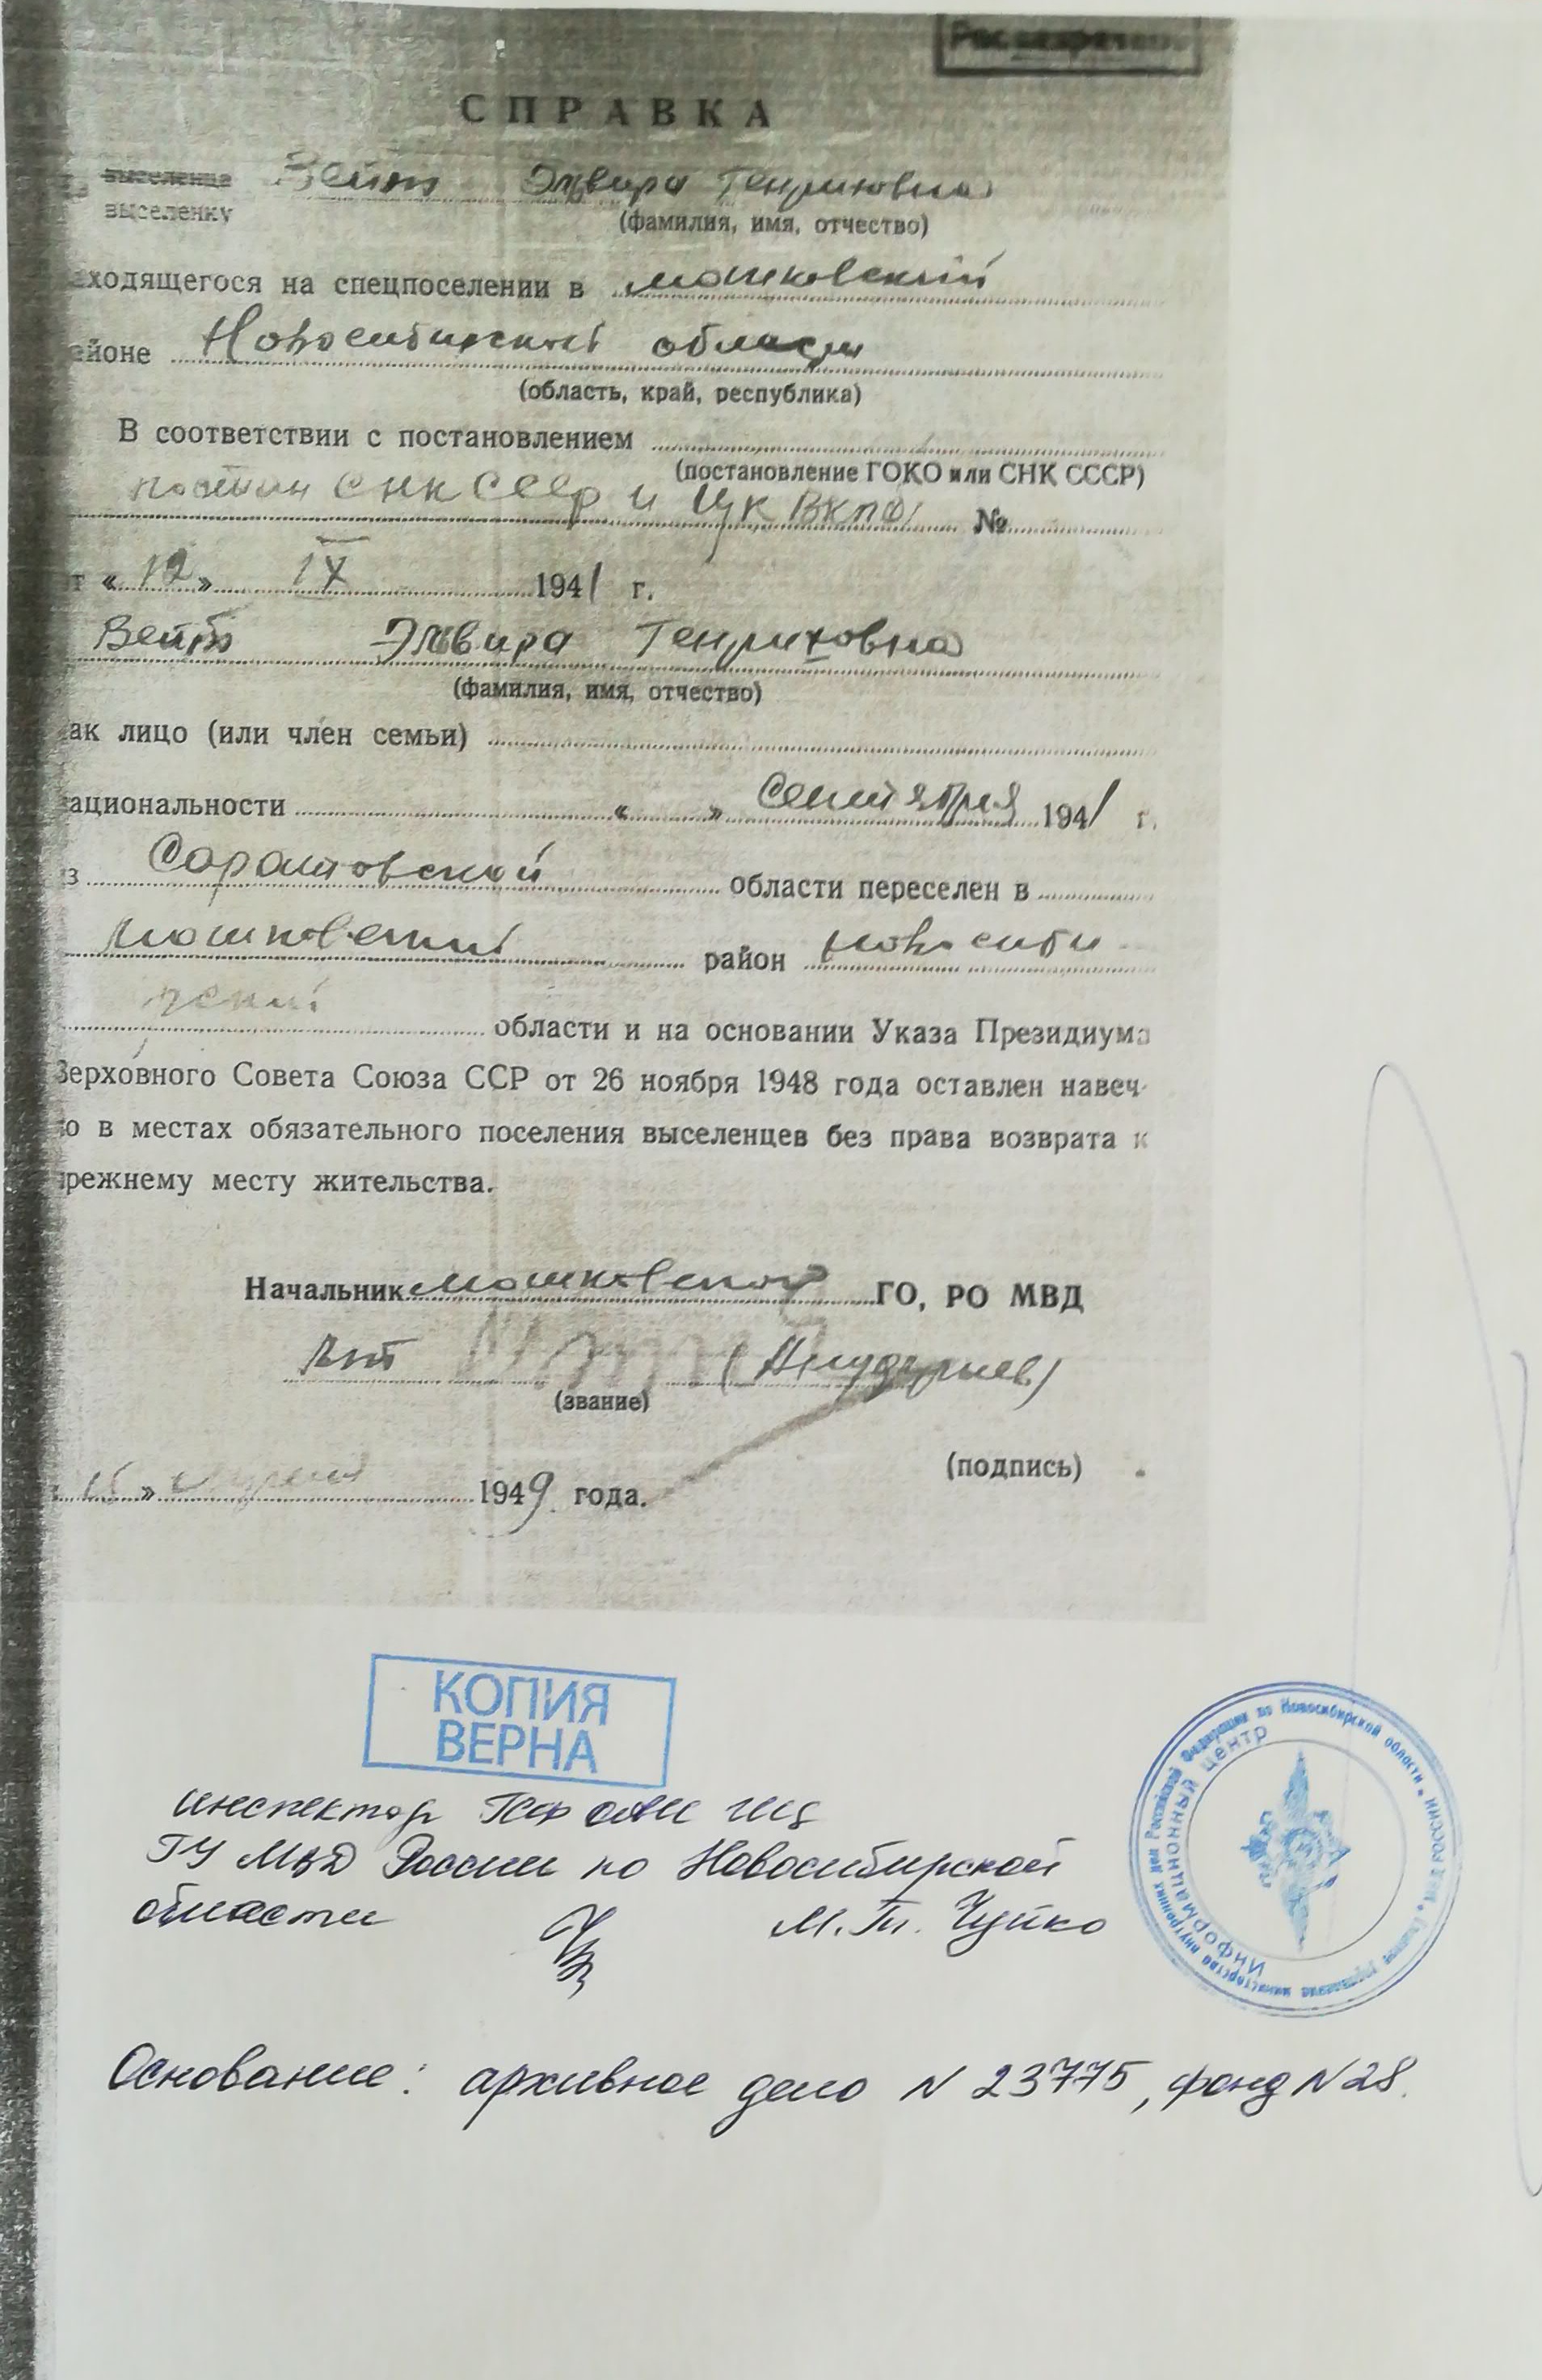 Рассекречено
СПРАВКА
выселенца Вейт Эльвира Генриховна
выселенку
(фамилия, имя, отчество)
аходящегося на спецпоселении в Мошковский
айоне Новосибирской области
(область, край, республика)
В соответствии с постановлением
(постановление ГОКО или СНК СССР)
постан СНК СССР и ЦК ВКП(б) №
т «12» IX 1941 г.
Вейт Эльвира Генриховна
(фамилия, имя, отчество)
ак лицо (или член семьи)
ациональности « » сентября 1941 г.
з Саратовской области переселен в
Мошковский район Новосиби-
рский области и на основании Указа Президиума
Верховного Совета Союза ССР от 26 ноября 1948 года оставлен навеч-
о в местах обязательного поселения выселенцев без права возврата к
прежнему месту жительства.
Начальник Мошковского ГО, РО МВД
(звание)
(подпись)
» 1949 года.
КОПИЯ
ВЕРНА
инспектор ИЦ
ГУ МВД России по Новосибирской
области М.П. Чуйко
Министерство внутренних дел Российской Федерации по Новосибирской области
Информационный центр
Основание: архивное дело N 23775, фонд N 28.